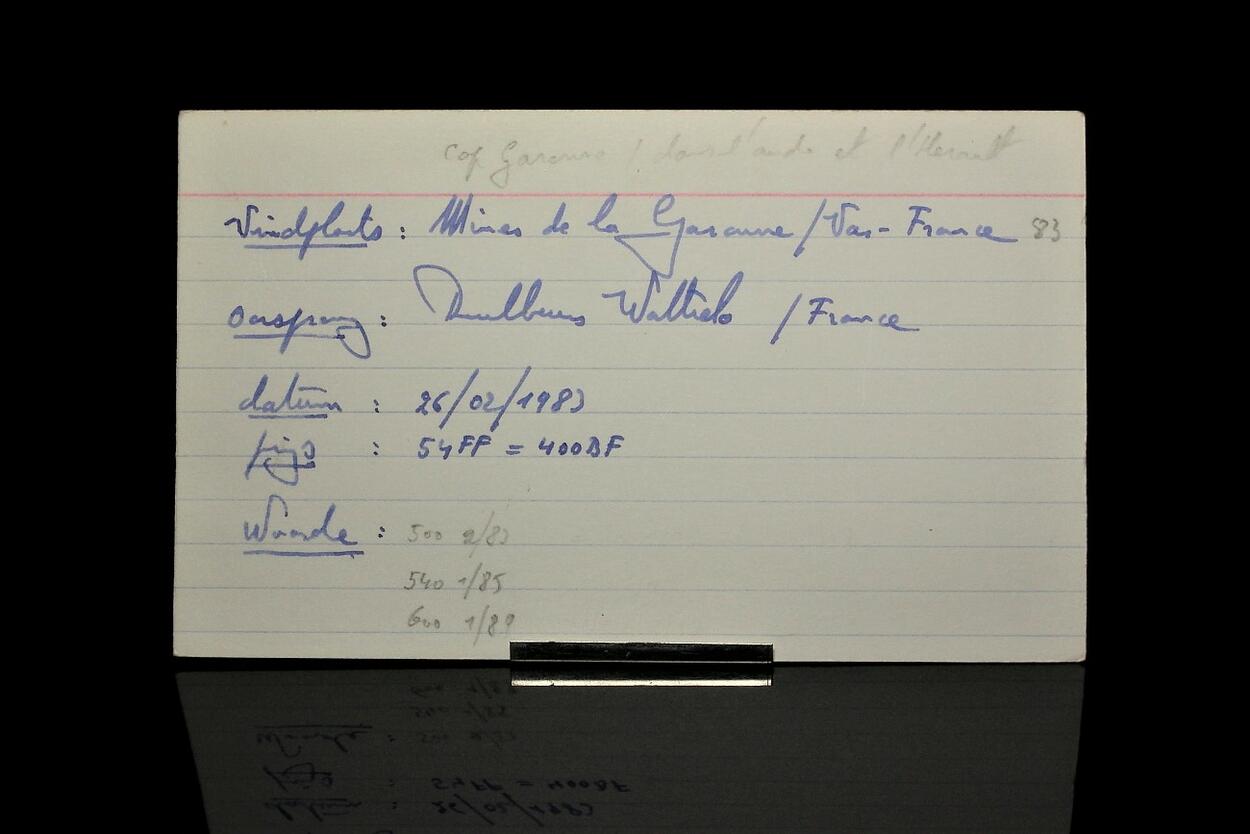 Cap Garonne / dans l'aude et l'Herault
Vindplaats : Mines de la Garonne / Var - France 83
Oorsprong : / France
datum : 26/02/1983
prijs : 54FF = 400BF
Waarde : 500 2/83
540 1/85
600 1/89